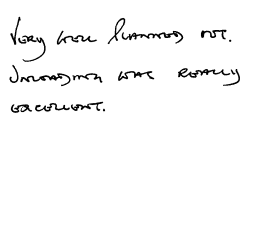 Very well planned out.
Unloading was really
excellent.